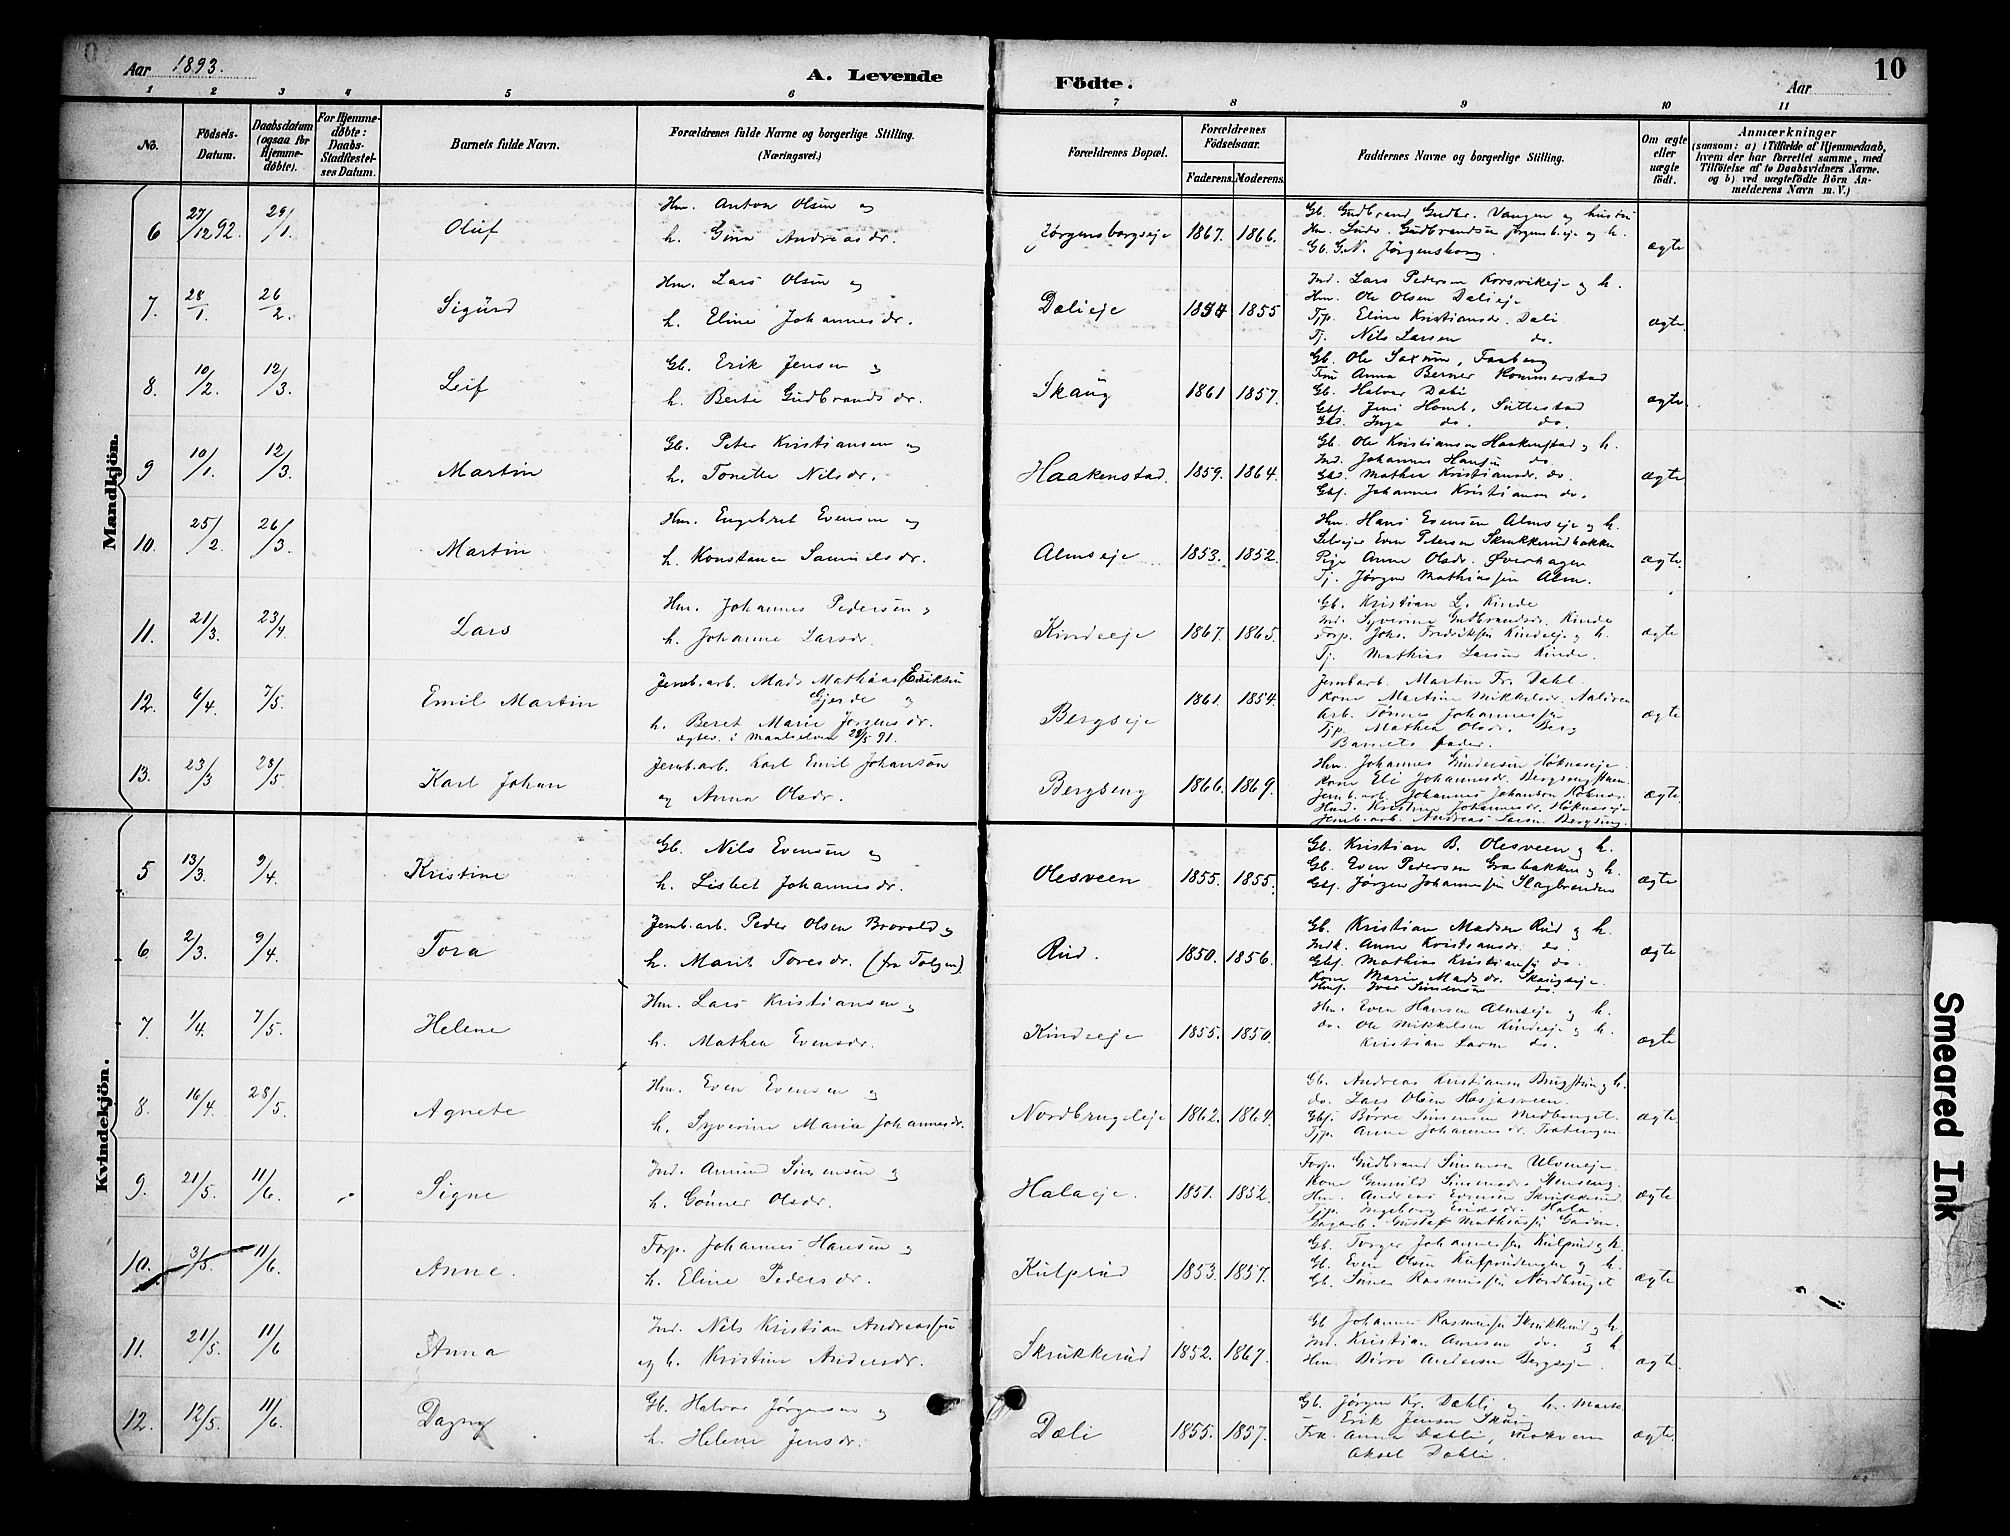 Aar 1893.
A. Levende
Födte.
Aar
10
1 2 3 4 5 6 7 8 9 10 11
No.
Födsels-Datum.
Daabsdatum (ogsaa for Hjemme-döbte).
For Hjemme-döbte: Daabs-Stadfæstel-ses Datum.
Barnets fulde Navn.
Forældrenes fulde Navne og borgerlige Stilling. (Næringsvei.)
Forældrenes Bopæl.
Forældrenes Födselsaar.
Faderens. Moderens.
Faddernes Navne og borgerlige Stilling.
Om ægte eller uægte födt.
Anmærkninger
(saasom: a) i Tilfælde af Hjemmedaab, hvem der har forrettet samme, med Tilföielse af to Daabsvidners Navne. og b) ved uægtefödte Börn An-melderens Navn m. V.)
Mandkjön.
6 27/12 92. 29/1. Oluf
Hm. Anton Olsen og
h. Gina Andreasdr.
Jørgensborgseje 1867. 1866.
Gb. Gudbrand Gudbr. Vangen og hustru
Hm. Gudbrandsen og h.
Gb. G.N. Jørgensborg
ægte
7. 28/1. 26/2. Sigurd
Hm. Lars Olsen og
h. Eline Johannesdr.
Dælieje 1854 1855
Ind. Lars Pedersen Korsvikeje og h.
Hm. Ole Olsen Dælieje
Tjp. Eline Kristiansdr. Dæli
Tj. Nils Larsen do.
ægte
8. 10/2. 12/3. Leif
Gb. Erik Jensen og
h. Berte Gudbrandsdr.
Skaug 1861 1857.
Gb. Ole Saxum, Faaberg
Fru Anna Berner Kommerstad
Gb. Halvor Dæli
Gbs. Jens Homb, Suttestad
Gbs. Inga do. do.
ægte.
9 10/1. 12/3. Martin
Gb. Peter Kristiansen og
h. Tonette Nilsdr.
Haakenstad. 1859. 1864.
Gb. Ole Kristiansen Haakenstad og h.
Ind. Johannes Hansen do.
Gbs. Mathea Kristiansdr. do.
Gbs. Johannes Kristiansen do.
ægte
10. 25/2. 26/3. Martin
Hm. Engebret Evensen og
h. Konstanse Samuelsdr.
Almseje 1853. 1852.
Hm. Hans Evensen Almseje og h.
Selvejer Even Petersen Skrukkerudbakken
Pige Anne Olsdr. Øverhagen
Tj. Jørgen Mathiassen Alm.
ægte
11. 21/3. 23/4. Lars
Hm. Johannes Pedersen og
h. Johanne Larsdr.
Kindseje 1867. 1865.
Gb. Kristian L. Kinde
Ind. Syverine Gudbrandsdr. Kinde
Forp. Johs. Fredriksen Kindseje og h.
Tj. Mathias Larsen Kinde.
ægte
12. 6/4. 7/5. Emil Martin
Jernb.arb. Mads Mathias Eriksen
Gjerde og
h. Beret Marie Jørgensdr.
ægtev. i Maalselven 28/5 91.
Bergseje 1861. 1854.
Jernb.arb. Martin Fr. Dahl.
Kone Martine Mikkelsdr.
Arb. Tønnes Johannessen
Tjp. Mathea Olsdr. Berg
Barnets fader.
ægte
13. 23/3 28/5. Karl Johan
Jernb.arb. Karl Emil Johanson
og Anna Olsdr.
Bergseng 1866. 1869.
Hm. Johannes Gundersen Høknaseje.
Kone Eli Johannesdr.
Jernb.arb. Johannes Johanson Høknas.
Kristine Johannesdr. Høknaseje
Jernb.arb. Andreas Larsen Bergseng.
ægte
Kvindekjön.
5 13/3. 9/4. Kristine
Gb. Nils Evensen og
h. Lisbet Johannesdr.
Olesveen 1855. 1855.
Gb. Kristian B. Olesveen og h.
Gb. Even Pedersen Græsbakken og h.
Gbs. Jørgen Johannessen Slagbrenden
ægte
6 2/3. 9/4. Tora
Jernb.arb. Peder Olsen Brovold og
h. Marit Toresdr. (fra Tolgen)
Rud. 1850. 1856.
Gb. Kristian Madsen Rud og h.
Indk. Anne Kristiansdr. do.
Gbs. Mathias Kristiansen do.
Kone Marie Madsdr. Skaugseje.
Hms. Iver Simensen do.
ægte
7. 1/4. 7/5. Helene
Hm. Lars Kristiansen og
h. Mathea Evensdr.
Kindseje 1855. 1850.
Hm. Even Hansen Almseje og h.
do. Ole Mikkelsen Kindseje og h.
Kristian Larsen do.
ægte
8. 16/4. 28/5. Agnete
Hm. Even Evensen og
h. Syverine Maria Johannesdr.
Nordbrugdeje 1862. 1864.
Gb. Andreas Kristiansen og h.
do. Lars Olsen Hasjasveen.
Gbs. Børre Simensen Medbruget.
Tjp. Anne Johannesdr.
ægte
9. 21/5. 11/6. Signe
Ind. Amund Simensen og
h. Gunner Olsdr.
Halaeje. 1851. 1852.
Forp. Gudbrand Simensen Ulveneje.
Kone Gunhild Simensdr. Stenseng.
Hm. Andreas Evensen Skrukkerud.
Tjp. Ingeborg Eriksdr. Hala.
Dagarb. Gustaf Mathiassen
ægte
10. 3/5. 11/6. Anne.
Forp. Johannes Hansen og
h. Eline Pedersdr.
Kulprud 1853. 1857.
Gb. Torger Johannessen Kulprud og h.
Gb. Even Olsen og h.
Gb. Simen Rasmussen Nordbruget
ægte
11. 21/5. 11/6 Anna
Ind. Nils Kristian Andreassen
og h. Kristine Andersdr.
Skrukkerud 1852. 1867.
Gb. Johannes Rasmussen Skrukkerud og h.
Ind. Kristian Arnesen do. og h.
Hm. Børre Andersen Bergseje.
ægte.
12. 12/5. 11/6. Dagny
Gb. Halvor Jørgensen og
h. Helene Jensdr.
Dæli 1855. 1857.
Gb. Jørgen Kr. Dæhli og h. Marte
Erik Jensen Skaug
Frk. Anna Dæhli,
Aksel Dæhli.
ægte.
Smeared Ink